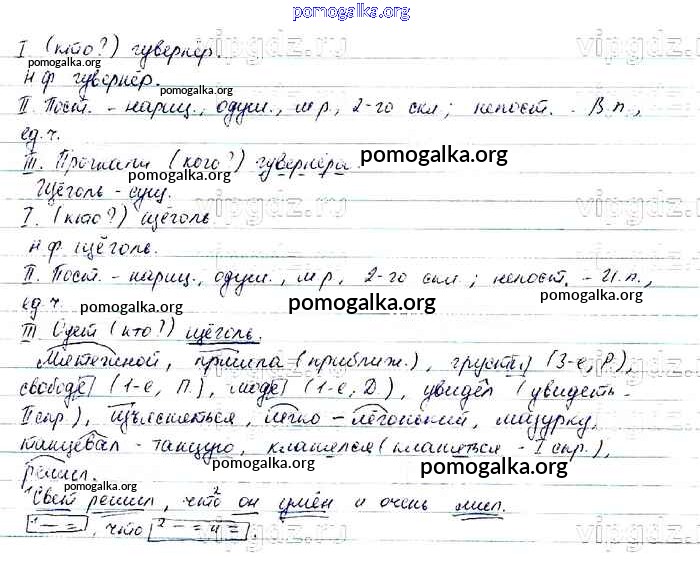 pomogalka.org
I (кто?) гувернёр.
Н.ф гувернёр.
pomogalka.org
II Пост. - нариц., одуш., м.р, 2-го скл; непост. - В.п.,
pomogalka.org
ед.ч.
III. Прогнали (кого?) гувернёра.
pomogalka.org
Щёголь - сущ.
pomogalka.org
vipgdz.ru
I. (кто?) щёголь.
н.ф. щёголь.
II. Пост. - нариц., одуш., м.р, 2-го скл; непост. - И.п.,
pomogalka.org
ед.ч.
pomogalka.org
pomogalka.org
III Одет (кто?) щёголь.
Мятежной, пришла (приближ.), грусти (3-е, Р.),
свободе (1-е, П.), моде (1-е, Д.), увидел (увидеть -
pomogalka.org
II спр.), изъясняться, легко - лёгонький, мазурку,
танцевал - танцую, кланялся (кланяться - I спр.),
pomogalka.org
pomogalka.org
решил.
pomogalka.org
vipgdz.ru
¹Свет решил, что ²он умён и очень мил.
[¹- =], что [²- = и =].
vipgdz.ru